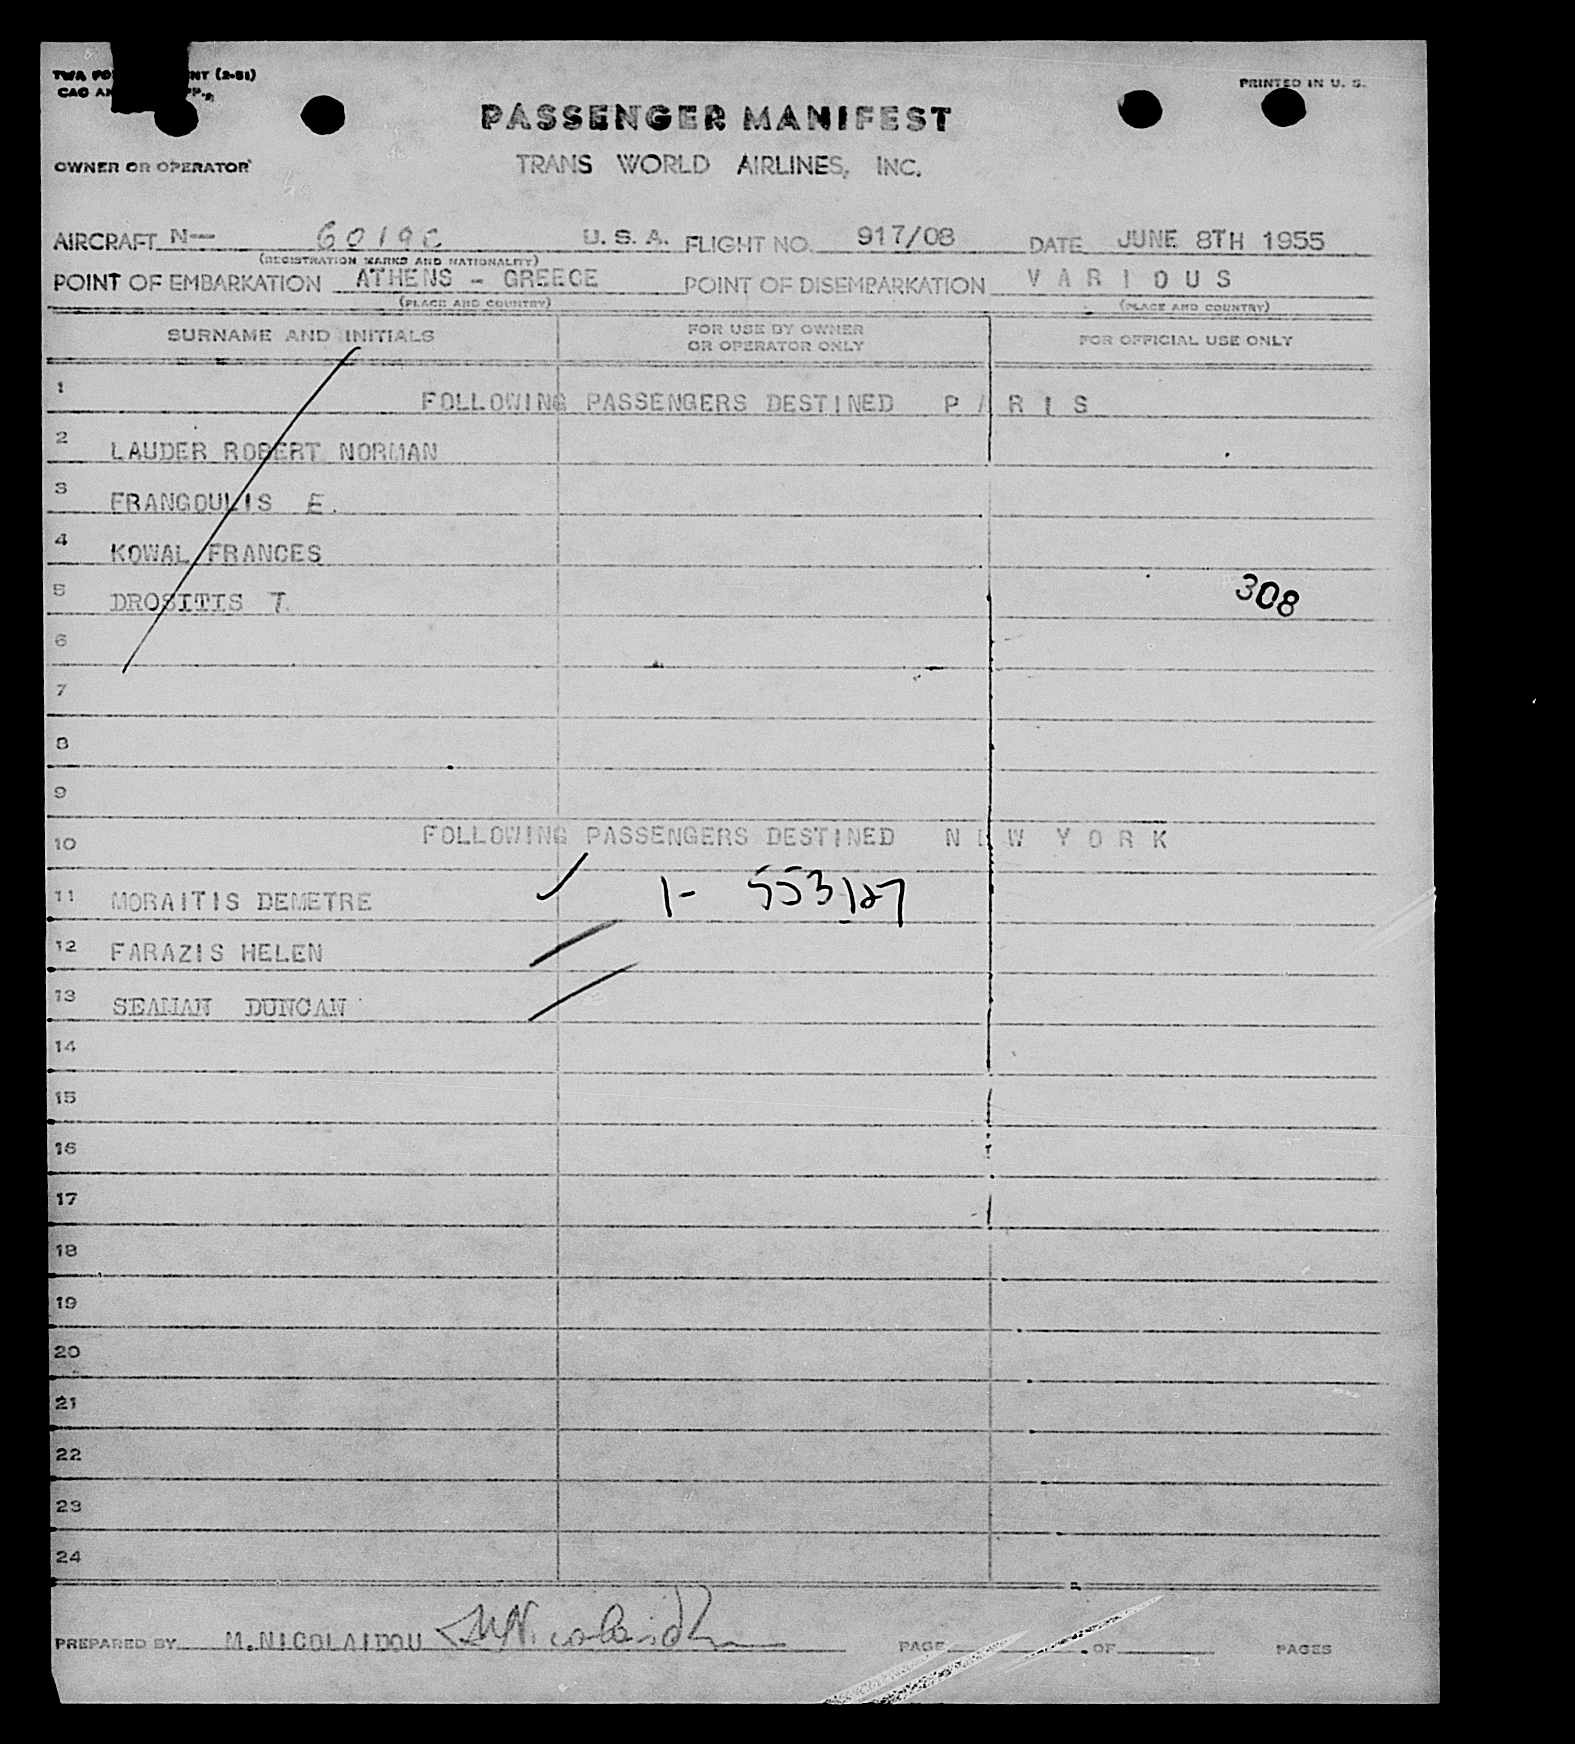 TWA FO NT (2-51)
CAO AN PP.
PRINTED IN U. S.
PASSENGER MANIFEST
OWNER OR OPERATOR
TRANS WORLD AIRLINES, INC.
AIRCRAFT N— 6019C U.S.A. FLIGHT NO. 917/08 DATE JUNE 8TH 1955
(REGISTRATION MARKS AND NATIONALITY)
POINT OF EMBARKATION ATHENS - GREECE POINT OF DISEMBARKATION VARIOUS
(PLACE AND COUNTRY) (PLACE AND COUNTRY)
SURNAME AND INITIALS FOR USE BY OWNER OR OPERATOR ONLY FOR OFFICIAL USE ONLY
1 FOLLOWING PASSENGERS DESTINED PARIS
2 LAUDER ROBERT NORMAN
3 FRANGOULIS E.
4 KOWAL FRANCES
5 DROSITIS T. 308
6
7
8
9
10 FOLLOWING PASSENGERS DESTINED NEW YORK
11 MORAITIS DEMETRE 1- 553127
12 FARAZIS HELEN
13 SEAMAN DUNCAN
14
15
16
17
18
19
20
21
22
23
24
PREPARED BY M.NICOLAIDOU PAGE OF PAGES